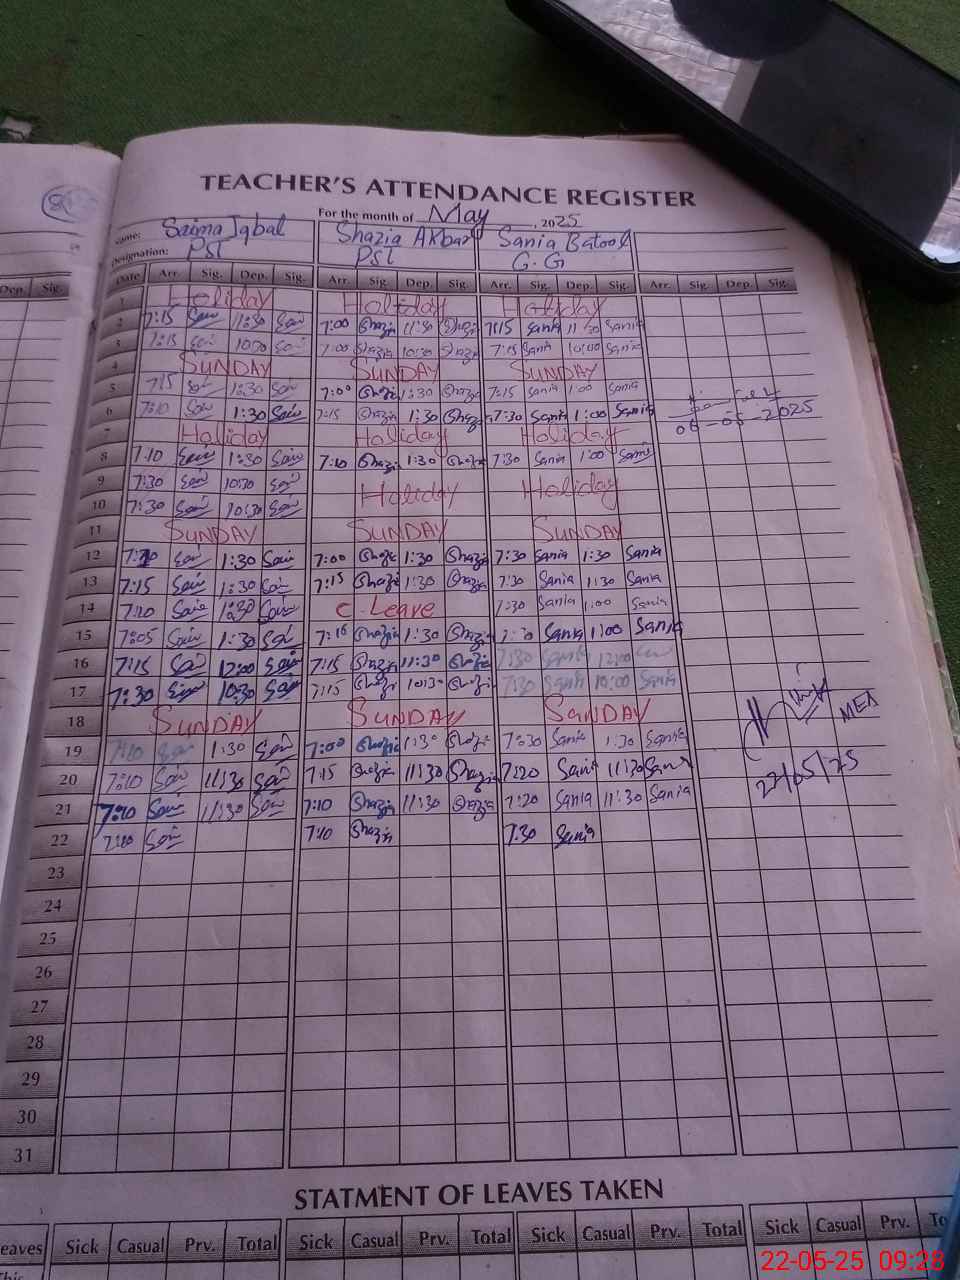 TEACHER'S ATTENDANCE REGISTER
For the month of May, 2025
Name: Saima Iqbal Shazia Akbar Sania Batool
Designation: PST PST G.G
Dep. Sig. Date Arr. Sig. Dep. Sig. Arr. Sig. Dep. Sig. Arr. Sig. Dep. Sig. Arr. Sig. Dep. Sig.
1 Holiday Holiday Holiday
2 7:15 Sai 11:30 Sai 7:00 Shazia 11:30 Shazia 7:15 Sania 11:30 Sania
3 7:15 Sai 10:30 Sai 7:00 Shazia 10:30 Shazia 7:15 Sania 10:00 Sania
4 SUNDAY SUNDAY SUNDAY
5 7:15 Sai 1:30 Sai 7:00 Shazia 1:30 Shazia 7:15 Sania 1:00 Sania
6 7:10 Sai 1:30 Sai 7:15 Shazia 1:30 Shazia 7:30 Sania 1:00 Sania 06-05-2025
7 Holiday Holiday Holiday
8 7:10 Sai 1:30 Sai 7:10 Shazia 1:30 Shazia 7:30 Sania 1:00 Sania
9 7:30 Sai 10:30 Sai Holiday Holiday
10 7:30 Sai 10:30 Sai
11 SUNDAY SUNDAY SUNDAY
12 Sai 1:30 Sai 7:00 Shazia 1:30 Shazia 7:30 Sania 1:30 Sania
13 7:15 Sai 1:30 Sai 7:15 Shazia 1:30 Shazia 7:30 Sania 1:30 Sania
14 7:10 Sai 1:30 Sai C. Leave 7:30 Sania 1:00 Sania
15 7:05 Sai 1:30 Sai Shazia 1:30 Shazia Sania 1:00 Sania
16 7:15 Sai 12:00 Sai 7:15 Shazia 11:30 Shazia 7:30 Sania 12:00
17 7:30 Sai 10:30 Sai 7:15 Shazia 10:30 Shazia 7:30 Sania 10:00 Sania
18 SUNDAY SUNDAY SANDAY MEA
19 7:10 Sai 1:30 Sai 7:00 Shazia 1:30 Shazia 7:30 Sania 1:30 Sania
20 7:10 Sai 11:30 Sai 7:15 Shazia 11:30 Shazia 7:20 Sania 11:30 Sania 22/05/25
21 7:10 Sai 11:30 Sai 7:10 Shazia 11:30 Shazia 7:20 Sania 11:30 Sania
22 7:10 Sai 7:10 Shazia 7:30 Sania
23
24
25
26
27
28
29
30
31
STATMENT OF LEAVES TAKEN
eaves Sick Casual Prv. Total Sick Casual Prv. Total Sick Casual Prv. Total Sick Casual Prv. To
This
22-05-25 09:28